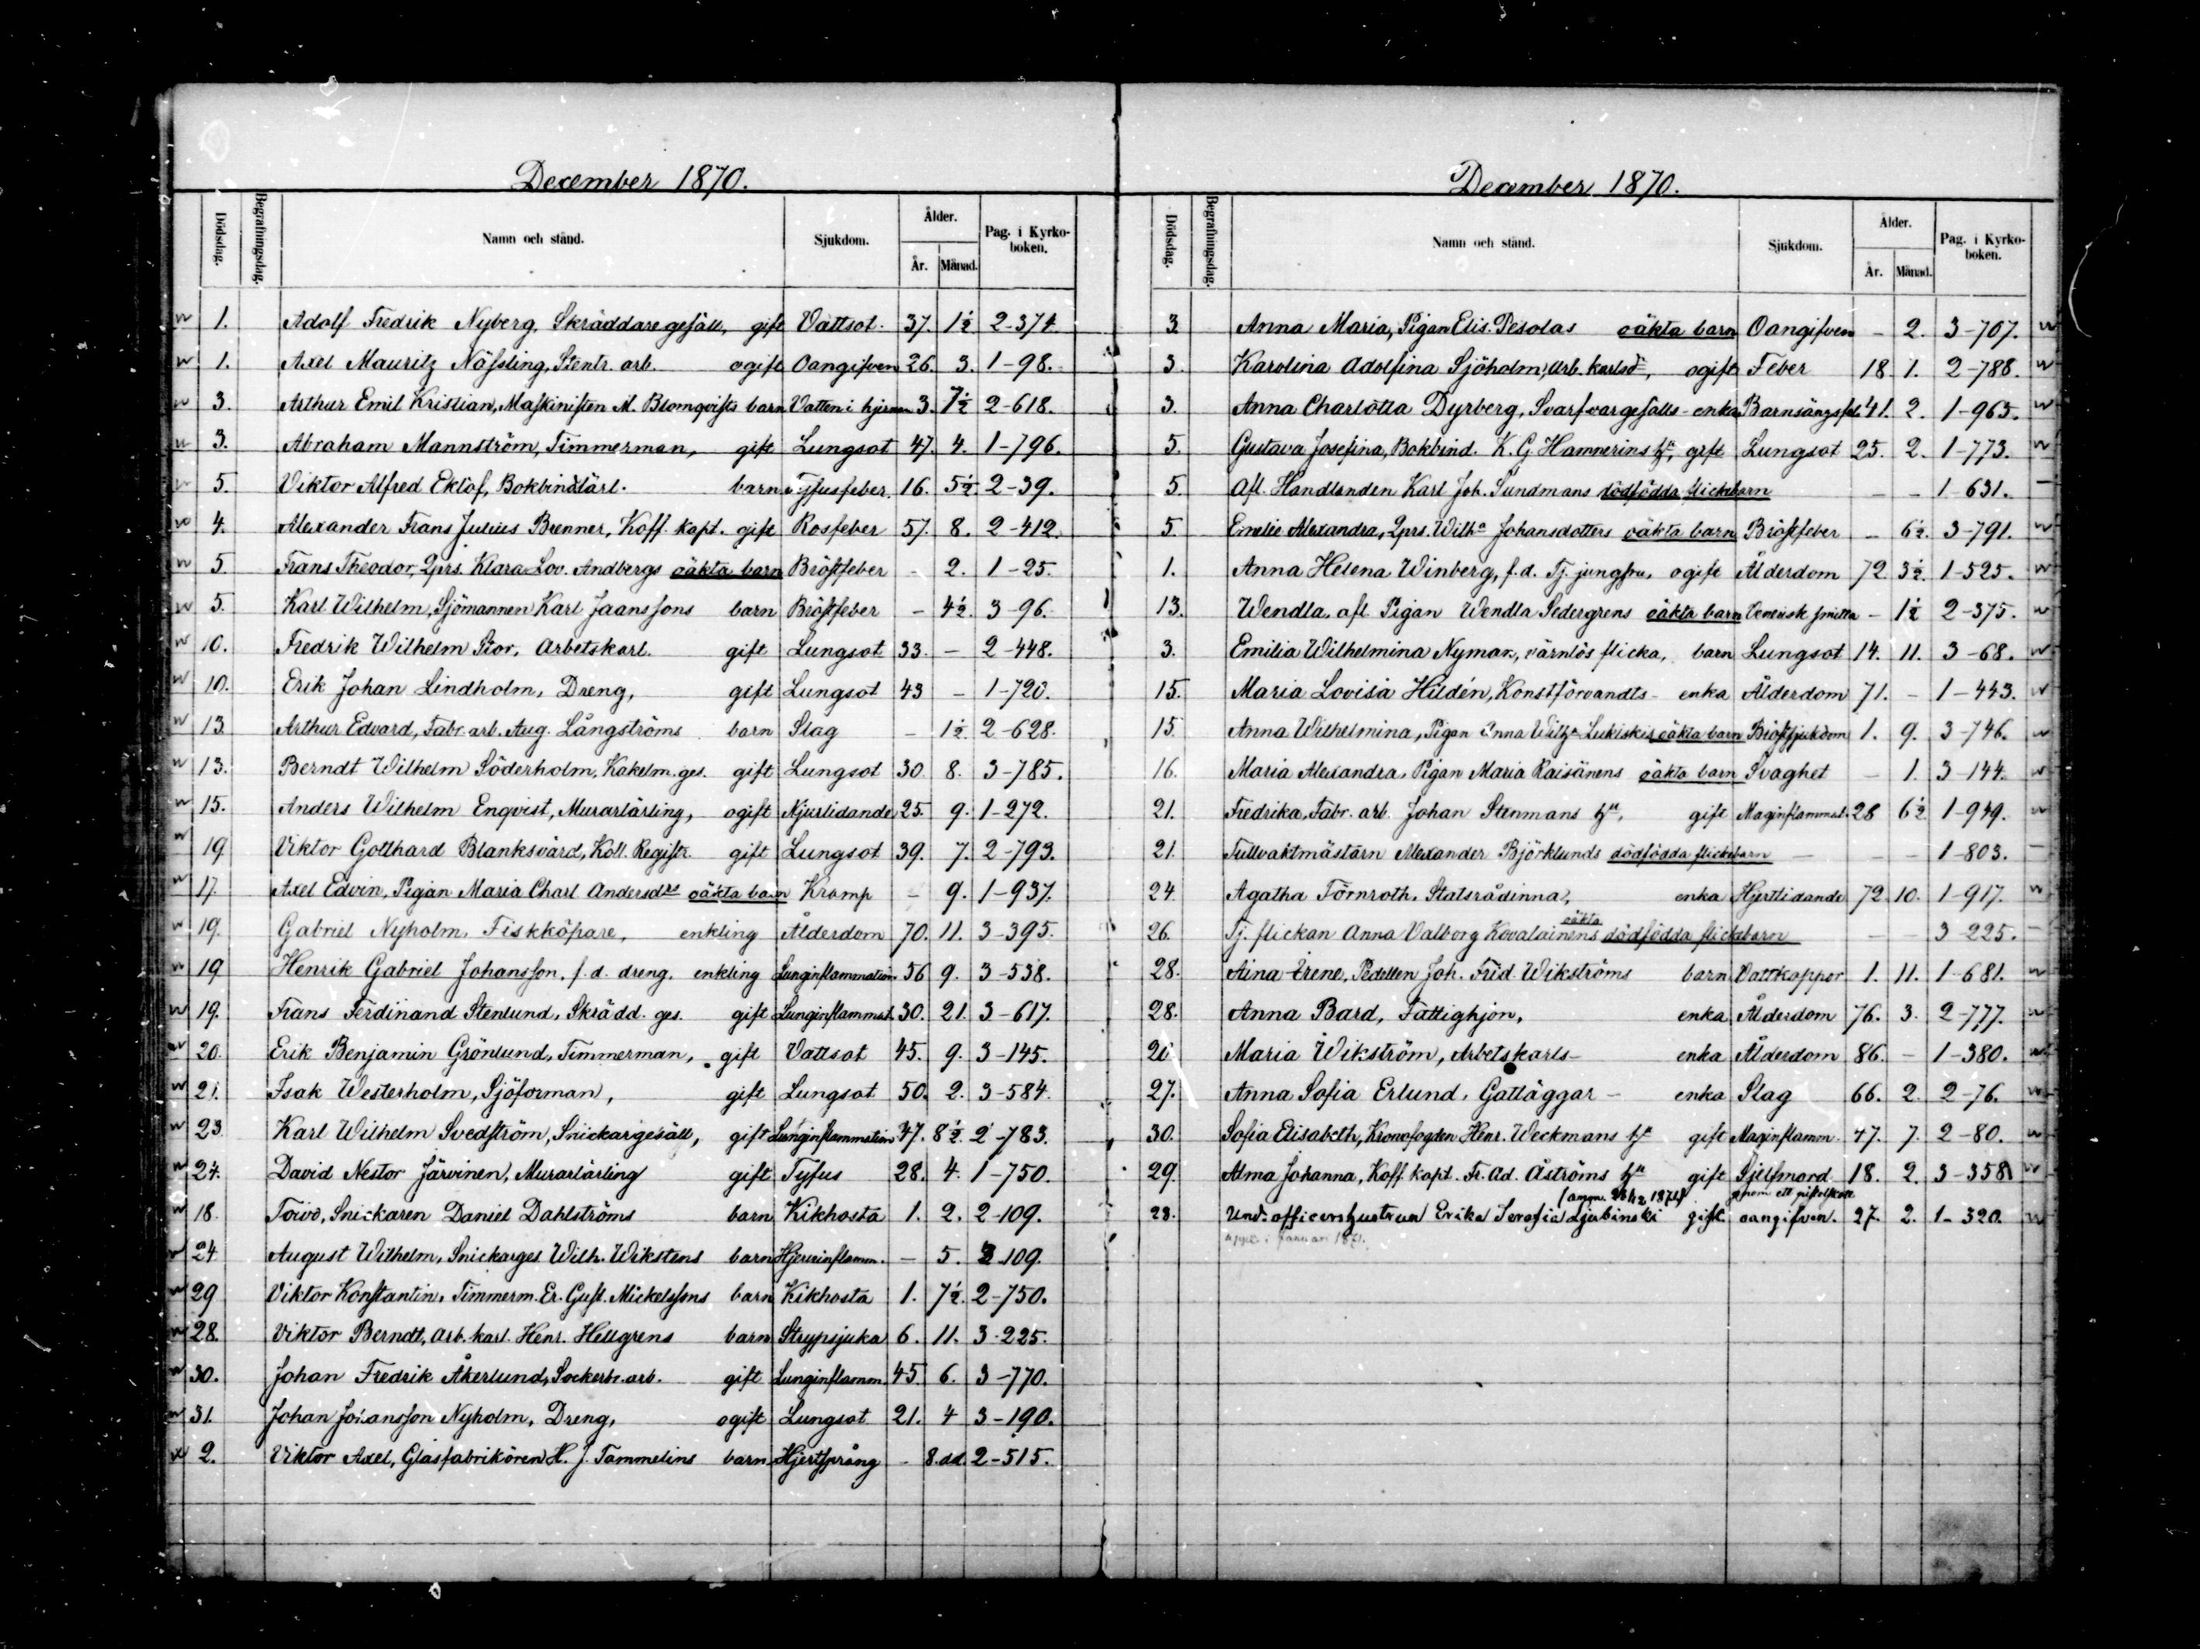 December 1870.
Dödsdag. Begrafningsdag. Namn och stånd. Sjukdom. Ålder. År. Månad. Pag. i Kyrko-boken.
1. Adolf Fredrik Nyberg, Skräddaregesäll, gift Vattsot. 37. 1½ 2-374
1. Axel Mauritz Näfsling, Stentr. arb. ogift Oangifven 26. 3. 1-98.
3. Arthur Emil Kristian, Maskinisten M. Blomqvists barn Vatten i hjernan 3. 7½ 2-618.
3. Abraham Mannström, Timmerman, gift Lungsot 47. 4. 1-796.
5. Viktor Alfred Eklof, Bokbind.lärl. barn Tyfusfeber. 16. 5½. 2-39.
4. Alexander Frans Julius Brenner, Koff. kapt. gift Rosfeber 57. 8. 2-412.
5. Frans Theodor, Qprs. Klara Lov. Andbergs oäkta barn Bröstfeber - 2. 1-25.
5. Karl Wilhelm, Sjömannen Karl Jaanssons barn Bröstfeber - 4½. 3-96.
10. Fredrik Wilhelm Stor, Arbetskarl. gift Lungsot 33. - 2-448.
10. Erik Johan Lindholm, Dreng, gift Lungsot 43 - 1-720.
13. Arthur Edvard, Fabr. arb. Aug. Långströms barn Slag - 1½. 2-628.
13. Berndt Wilhelm Söderholm, Kakelm. ges. gift Lungsot 30. 8. 3-785.
15. Anders Wilhelm Enqvist, Murarlärling, ogift Njurlidande 25. 9. 1-272.
19. Viktor Gotthard Blanksvärd, Koll. Registr. gift Lungsot 39. 7. 2-793.
17. Axel Edvin, Pigan Maria Charl. Andersdrs oäkta barn Kramp - 9. 1-937.
19. Gabriel Nyholm, Fiskköpare, enkling Ålderdom 70. 11. 3-395.
19 Henrik Gabriel Johansson, f.d. dreng. enkling Lunginflammation. 56 9. 3-538.
19. Frans Ferdinand Stenlund, Skrädd. ges. gift Lunginflammat. 30. 21. 3-617.
20. Erik Benjamin Grönlund, Timmerman, gift Vattsot 45. 9. 3-145.
21. Isak Westerholm, Sjöforman, gift Lungsot 50. 2. 3-584.
23. Karl Wilhelm Svedström, Snickargesäll, gift Lunginflammation 47. 8½. 2-783.
24. David Nestor Järvinen, Murarlärling gift Tyfus 28. 4. 1-750.
18. Toivo, Snickaren Daniel Dahlströms barn Kikhosta 1. 2. 2-109.
24 August Wilhelm, Snickarges. Wilh. Wikstens barn - 5. 109.
29 Viktor Konstantin, Timmerm. Er. Gust. Mickelssons barn Kikhosta 1. 7½. 2-750.
28. Viktor Berndt, Arb. karl. Henr. Hellgrens barn Strypsjuka 6. 11. 3-225.
30. Johan Fredrik Åkerlund, Sockerbr. arb. gift Lunginflamm. 45. 6. 3-770.
31. Johan Johansson Nyholm, Dreng, ogift Lungsot 21. 4 3-190.
2. Viktor Axel, Glasfabrikören H. J. Tammelins barn Hjertsprång - 8.dd. 2-515.
December 1870.
Dödsdag. Begrafningsdag. Namn och stånd. Sjukdom. Ålder. År. Månad. Pag. i Kyrko-boken.
3 Anna Maria, Pigan Elis. Pesolas oäkta barn Oangifven - 2. 3-707.
3. Karolina Adolfina Sjöholm, Arb. karlsd., ogift Feber 18. 1. 2-788.
3. Anna Charlotta Dyrberg, Svarfvargesälls-enka Barnsängsfeb. 41. 2. 1-963.
5. Gustava Josefina, Bokbind. K. G. Hamnerins hu, gift Lungsot 25. 2. 1-773.
5. Afl. Handlanden Karl Joh. Sundmans dödfödda flickebarn - - 1-631.
5. Emelie Alexandra, Qprs. Wilha Johansdotters oäkta barn Bröstfeber - 6½. 3-791.
1. Anna Helena Winberg, f.d. Tj. jungfru, ogift Ålderdom 72. 3½. 1-525.
13. Wendla, afl. Pigan Wendla Sedergrens oäkta barn Venerisk smitta - 1½ 2-375.
3. Emilia Wilhelmina Nyman, värnlös flicka, barn Lungsot 14. 11. 3-68.
15. Maria Lovisa Hildén, Konstförvandts- enka Ålderdom 71. - 1-443.
15. Anna Wilhelmina, Pigan Anna Wilha Lukiskis oäkta barn Bröstsjukdom 1. 9. 3-746.
16. Maria Alexandra, Pigan Maria Raisänens oäkta barn Svaghet - 1. 3-144.
21. Fredrika, Fabr. arb. Johan Stenmans hu, gift Maginflammat. 28 6½ 1-949.
21. Tullvaktmästarn Alexander Björklunds dödfödda flickebarn - - - 1-803.
24. Agatha Törnroth, Statsrådinna, enka Hjertlidande 72. 10. 1-917.
oäkta
26. Tj. flickan Anna Valborg Kovalainens dödfödda flickebarn - - 3-225.
28. Aina Irene, Pedellen Joh. Fred. Wikströms barn Vattkoppor 1. 11. 1-681.
28. Anna Bard, Fattighjon, enka Ålderdom 76. 3. 2-777.
20. Maria Wikström, Arbetskarls- enka Ålderdom 86. - 1-380.
27. Anna Sofia Erlund, Gatläggar- enka Slag 66. 2. 2-76.
30. Sofia Elisabeth, Kronofogden Henr. Weckmans hu gift Maginflamm. 47. 7. 2-80.
29. Alma Johanna, Koff. kapt. Fr. Ad. Åströms hu gift Sjelfmord 18. 2. 3-358
genom ett pistolskott
23. Und.officershustrun Erika Serafia Ljubinski gift oangifven. 27. 2. 1-320.
i Januari 1871.